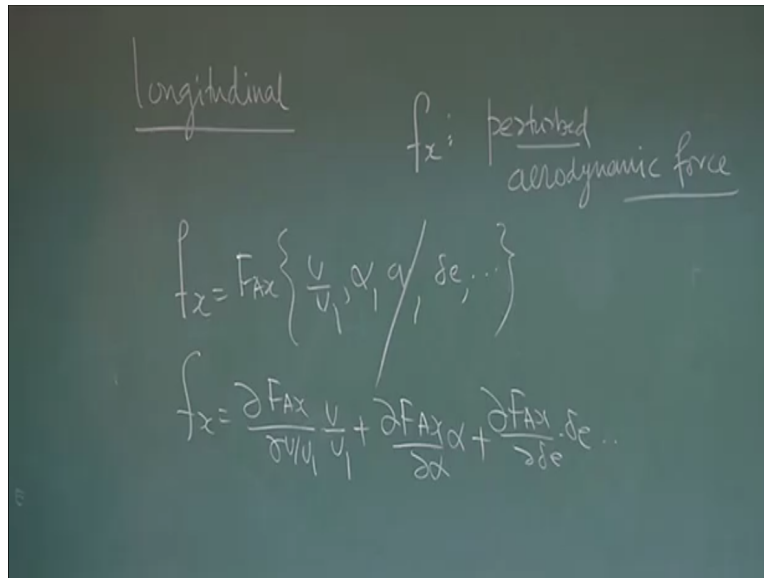 longitudinal
f_x: perturbed
aerodynamic force
f_x = F_Ax { u/U_1, α, q, δe, ... }
f_x = ∂F_Ax/∂u/U_1 u/U_1 + ∂F_Ax/∂α α + ∂F_Ax/∂δe · δe ..